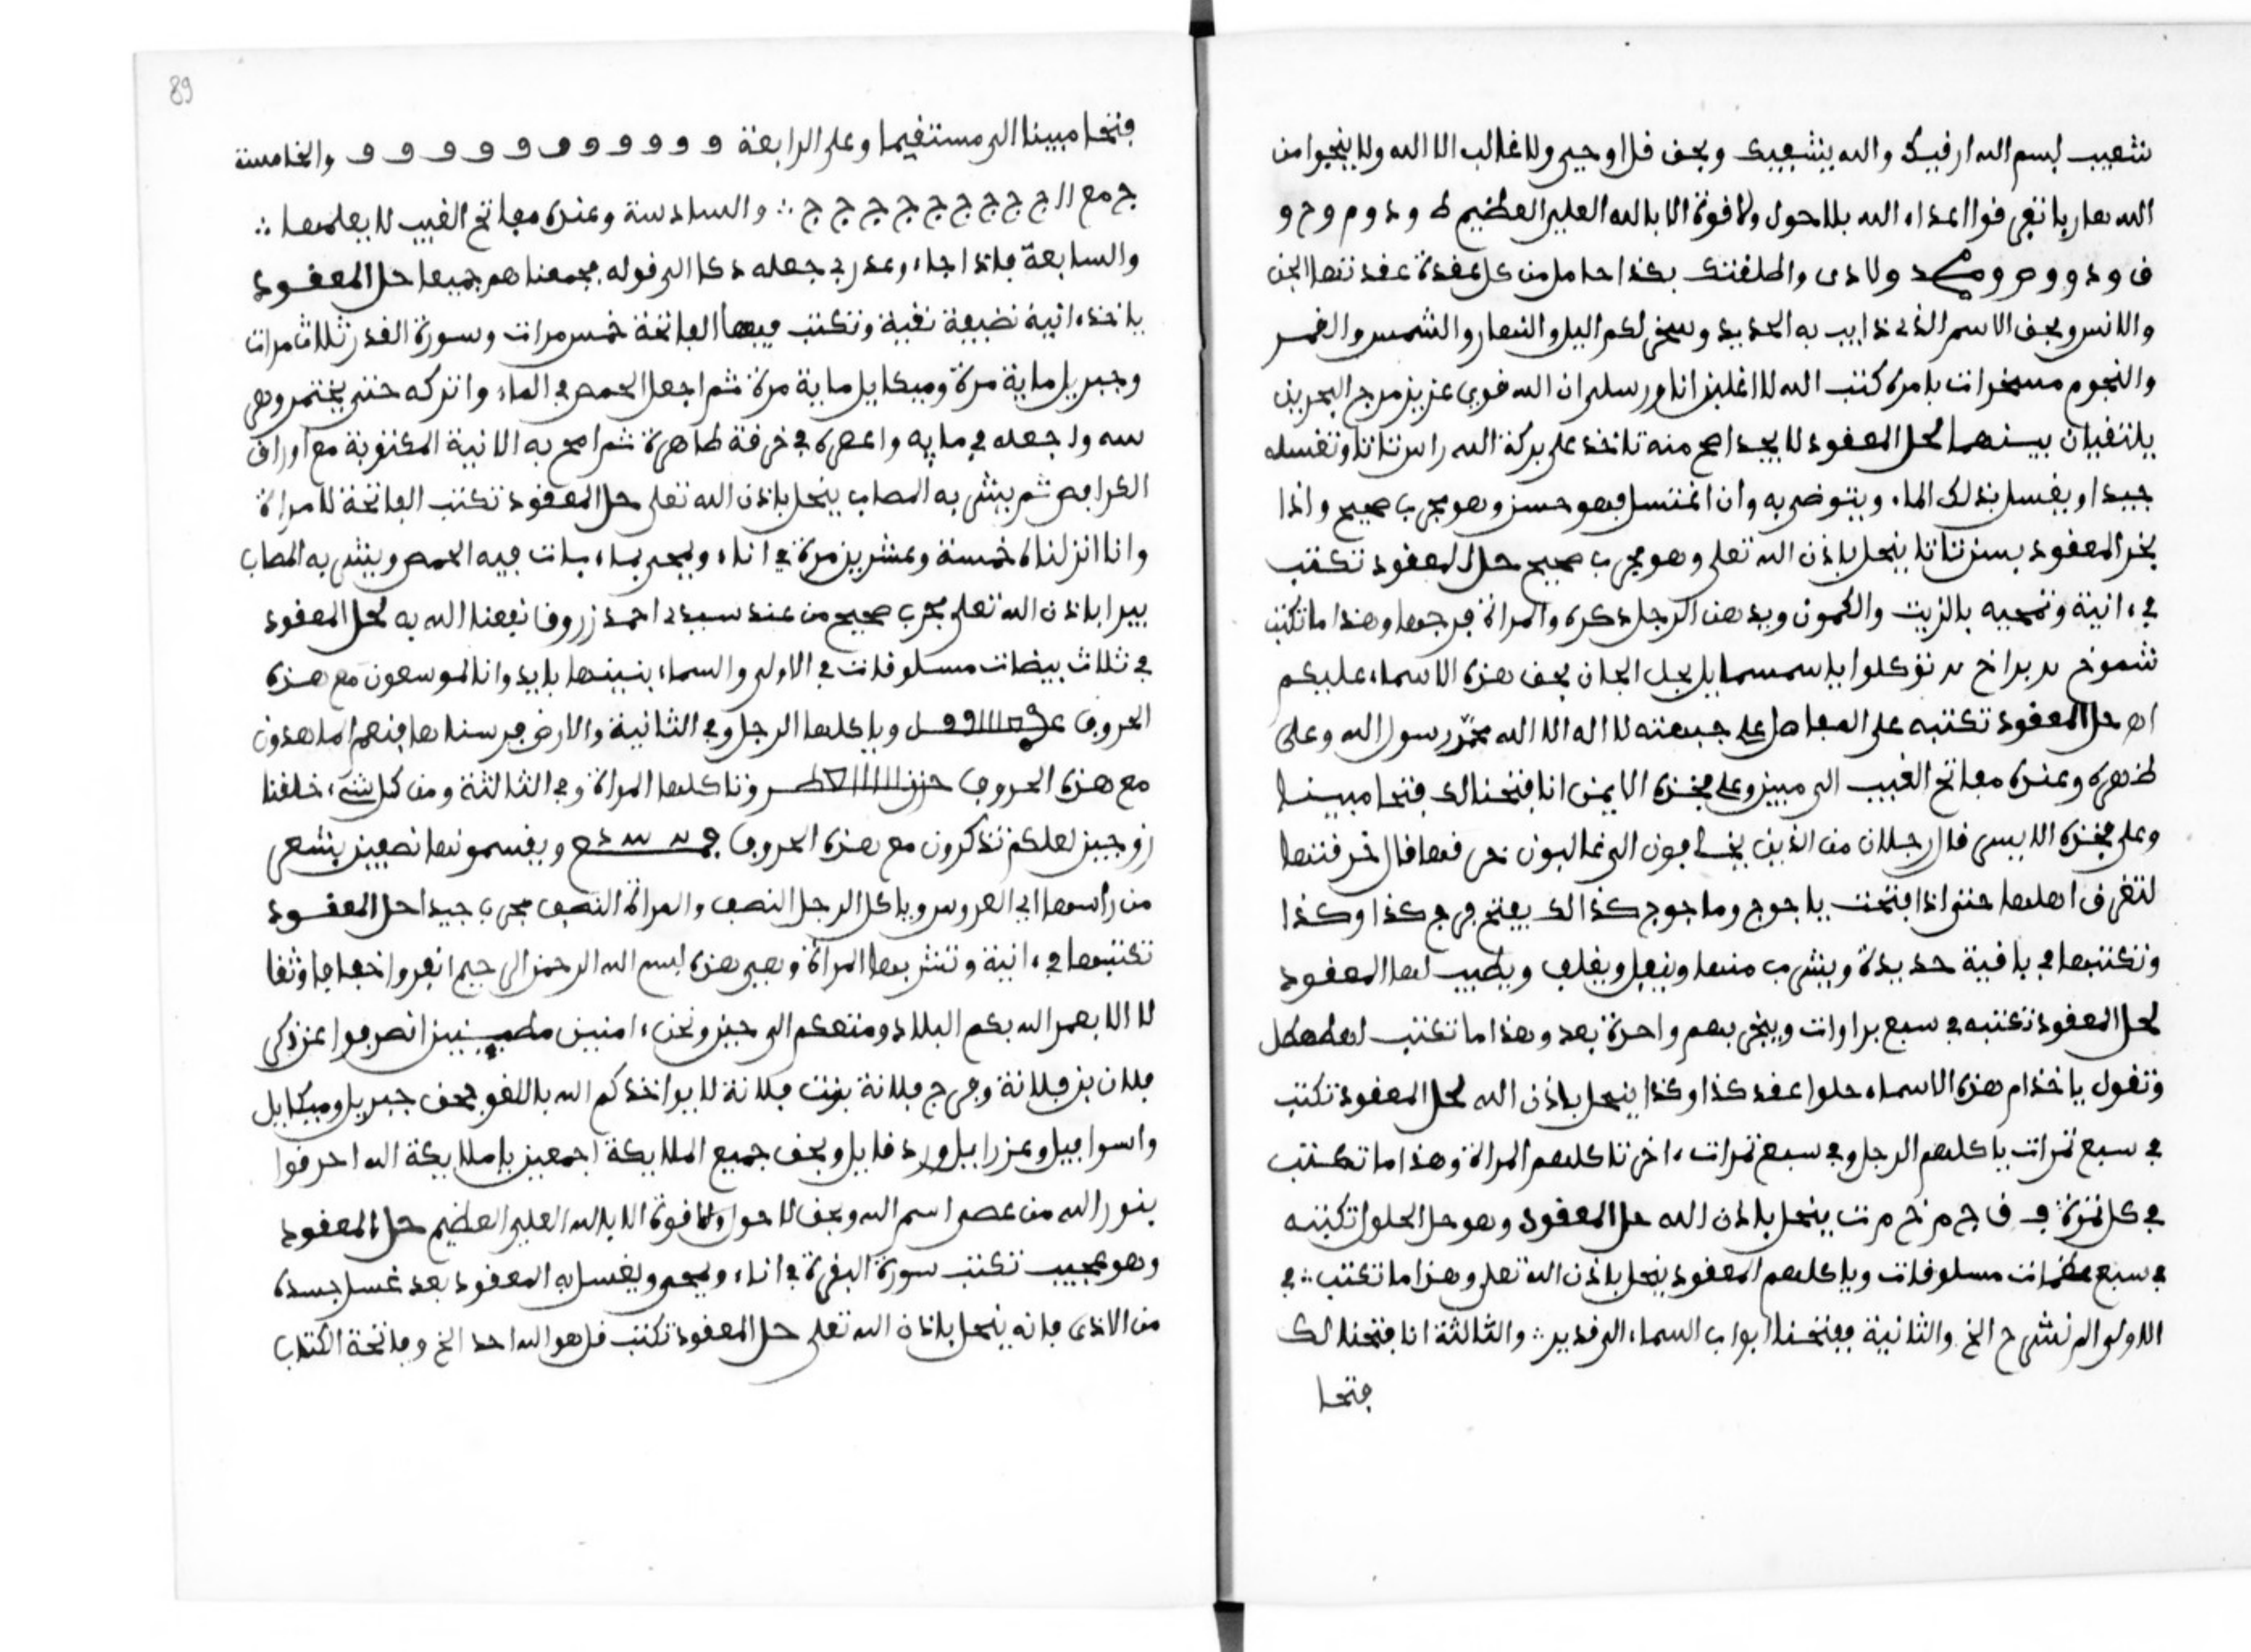 شعيب بسم الله ارفيك والله يشفيك وبحق قل اوحي ولا غالب الا الله ولا ينجوا من
الله هاربا تفرقوا اعداء الله بلا حول ولا قوة الا بالله العلي العظيم ط و د و م و ح و
ق و د و و ص و ولا دى واطلقتك بكذا حامل من كل عقدة عقدتها الجن
والانس وبحق الاسم الذي ذايب به الحديد وسخر لكم اليل والنهار والشمس والقمر
والنجوم مسخرات بامره كتب الله لا اغلبن انا ورسلي ان الله قوي عزيز مرج البحرين
يلتقيان بينهما لحل المعقود لا يجد اصح منه تاخذ على بركة الله راس تاتا وتغسله
جيدا ويغسل بذلك الماء ويتوضى به وان اغتسل فهو حسن وهو مجرب صحيح واذا
بخر المعقود بسن تاتا ينحل باذن الله تعلى وهو مجرب صحيح حل المعقود تكتب
في ءانية وتمحيه بالزيت والكمون ويدهن الرجل ذكره والمراة فرجها وهذا ما تكتب
شموخ بر براخ بر توكلوا يا سمسمايل بحل الجان بحق هذه الاسماء عليكم
اه حل المعقود تكتبه على المفاصل على جبهته لا اله الا الله محمد رسول الله وعلى
ظهره وعنده مفاتح الغيب الى مبين وعلى فخذه الايمن انا فتحنا لك فتحا مبينا
وعلى فخذه الايسر قال رجلان من الذين يخافون الى غالبون خرقها قال اخرقتها
لتغرق اهلها حتى اذا فتحت ياجوج وماجوج كذالك يفتح فرج كذا وكذا
وتكتبها في باقية جديدة ويشرب منها ويفعل ويطيب لها المعقود
لحل المعقود تكتبه في سبع براوات ويبخر بهم واحدة بعد وهذا ما تكتب لهطهطل
وتقول ياخذام هذه الاسماء حلوا عقد كذا وكذا ينحل باذن الله لحل المعقود تكتب
في سبع تمرات ياكلهم الرجل وفي سبع تمرات ءاخر تاكلهم المراة وهذا ما تكتب
في كل تمرة ف ق ج م خ م ت ينحل باذن الله حل المعقود وهو حل الحلول تكتبه
في سبع مسلوقات وياكلهم المعقود ينحل باذن الله تعلى وهذا ما تكتب ∴ في
الاولى الم نشرح الخ والثانية ففتحنا ابواب السماء الى قدير ∴ والثالثة انا فتحنا لك
فتحا
89
فتحا مبينا الى مستقيما وعلى الرابعة و و و و و و و و و و و و والخامسة
ج مع ال ج ج ج ج ج ج ج ج ج ∴ والسادسة وعنده مفاتح الغيب لا يعلمها ∴
والسابعة فاذا جاء وعد ربي جعله دكا الى قوله فجمعناهم جميعا حل المعقود
ياخذ ءانية نضيفة نقية وتكتب فيها الفاتحة خمس مرات وسورة القدر ثلاث مرات
وجبريل ماية مرة وميكايل ماية مرة ثم اجعل الحمص في الماء واتركه حتى يختمر وهى
سه واجعله في مايه واعصره في خرقة طاهرة ثم امح به الانية المكتوبة مع اوراق
الكرافص ثم يشربه المصاب ينحل باذن الله تعلى حل المعقود تكتب الفاتحة لامراة
وانا انزلناه خمسة وعشرين مرة في اناء ويمحى بماء بات فيه الحمص ويشربه المصاب
يبرا باذن الله تعلى مجرب صحيح من عند سيدي احمد زروق نفعنا الله به لحل المعقود
في ثلاث بيضات مسلوقات في الاولى والسماء بنينها بايد وانا لموسعون مع هذه
الحروف وياكلها الرجل وفي الثانية والارض فرسناها فنعم الماهدون
مع هذه الحروف وتاكلها المراة وفي الثالثة ومن كل شيء خلقنا
زوجين لعلكم تذكرون مع هذه الحروف ويقسمونها نصفين بشعر
من راسها اي العروس وياكل الرجل النصف والمراة النصف مجرب جيد احل المعقود
تكتبها في ءانية وتشربها المراة وهي هذه بسم الله الرحمن الرحيم انفروا خفافا وثقا
لا الا يعمر الله بكم البلاد ومتعكم الى حين ونحن ءامنين مطمينين انصرفوا عن ذكر
فلان بن فلانة وفرج فلانة بنت فلانة لا يواخذكم الله باللغو بحق جبريل وميكايل
واسرافيل وعزراييل ودرفاييل وبحق جميع الملايكة اجمعين يا ملايكة الله احرقوا
بنور الله من عصى اسم الله وبحق لا حول ولا قوة الا بالله العلي العظيم حل المعقود
وهو عجيب تكتب سورة البقرة في اناء ويمحى ويغسل به المعقود بعد غسل جسده
من الاذى فانه ينحل باذن الله تعلى حل المعقود تكتب قل هو الله احد الخ وفاتحة الكتاب